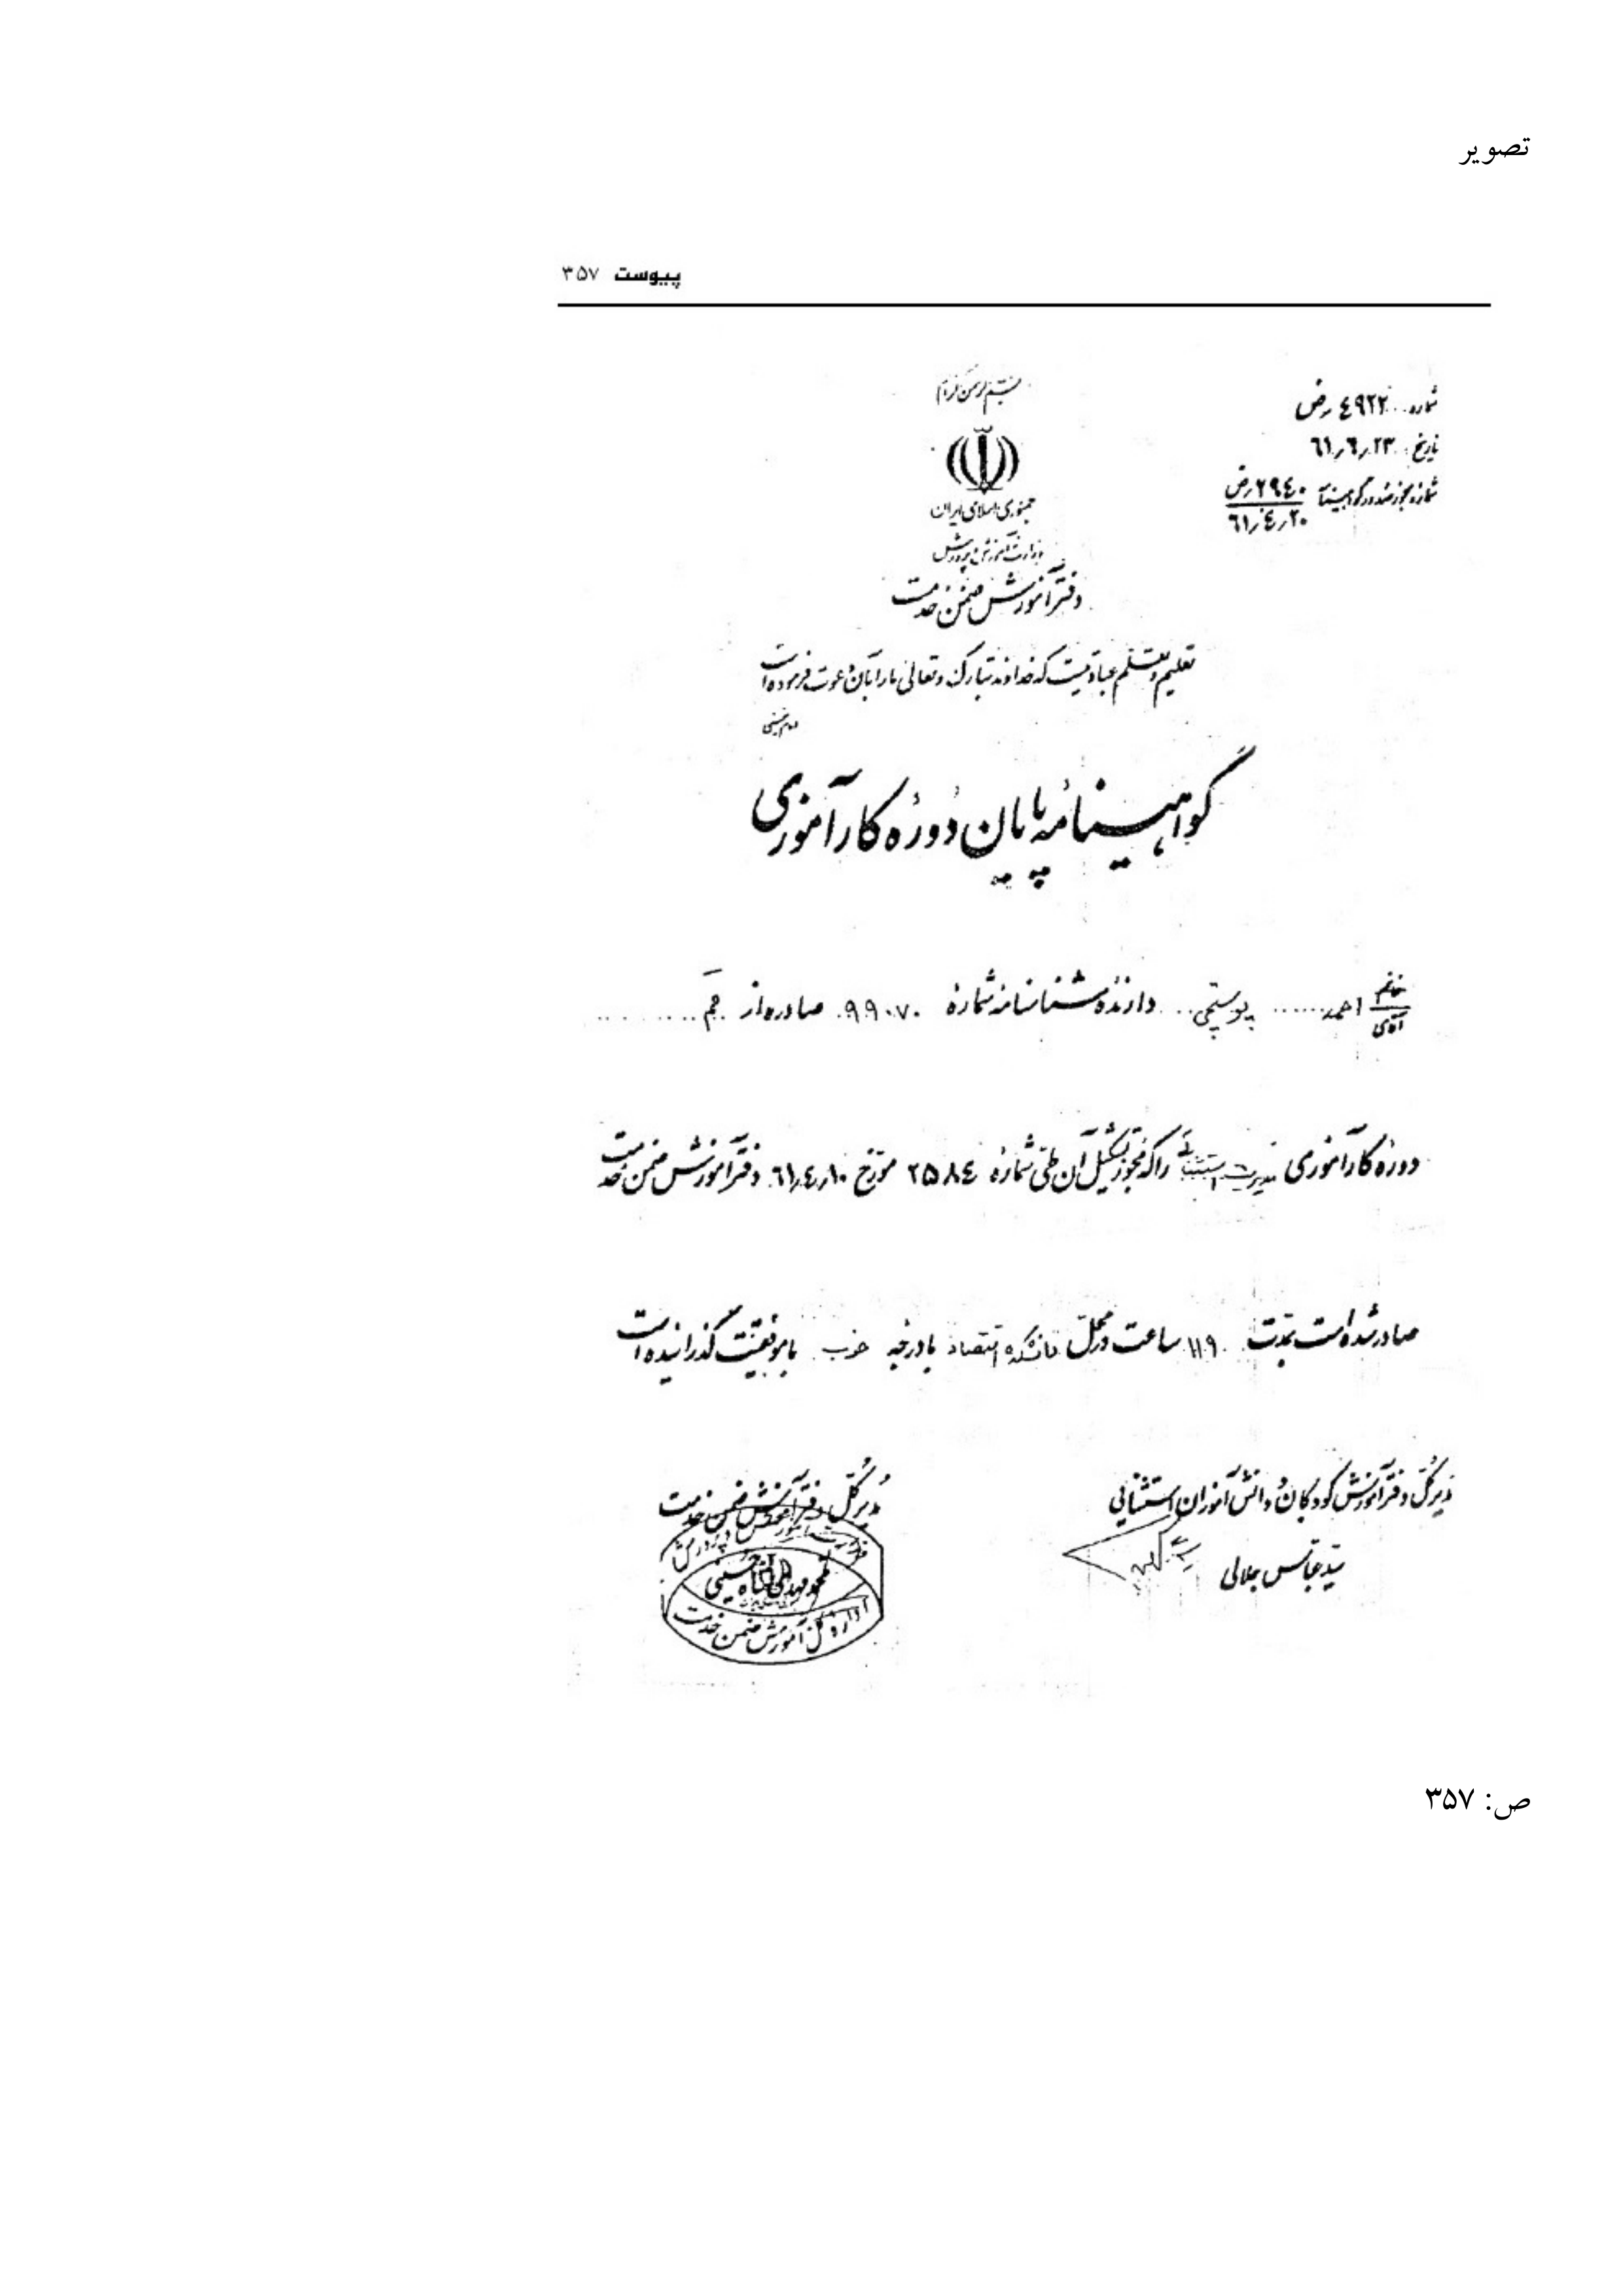 تصویر
پیوست ۳۵۷
بسم الله الرحمن الرحیم
شماره ٤٩٢٢رض
تاریخ ٦١٫٦٫٢٣
شماره مجوز صدور گواهینامه ٢٩٤٠رض
٦١٫٤٫٢٠
جمهوری اسلامی ایران
وزارت آموزش و پرورش
دفتر آموزش ضمن خدمت
تعلیم و تعلم عبادتیست که خداوند تبارک و تعالی ما را بآن دعوت فرموده است
امام خمینی
گواهینامه پایان دوره کارآموزی
خانم
آقای احمد پوستچی دارنده شناسنامه شماره ٩٩٠٧٠ صادره از قم
دوره کارآموزی مدیریت استثنائی را که مجوز تشکیل آن طی شماره ٢٥٨٤ مورخ ٦١٫٤٫١٠ دفتر آموزش ضمن خدمت
صادر شده است بمدت ١١٩ ساعت در محل دانشکده اقتصاد با درجه خوب با موفقیت گذرانیده است
مدیر کل دفتر آموزش کودکان و دانش آموزان استثنایی
سید عباس جلالی
مدیر کل دفتر آموزش ضمن خدمت
وزارت آموزش و پرورش
اداره کل آموزش ضمن خدمت
ص: ۳۵۷